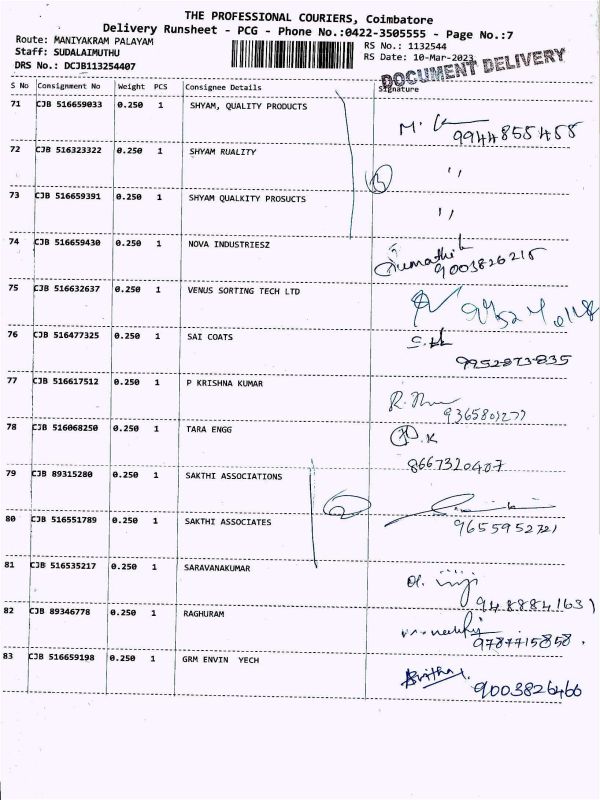 THE PROFESSIONAL COURIERS, Coimbatore
Delivery Runsheet - PCG - Phone No.:0422-3505555 - Page No.:7
Route: MANIYAKRAM PALAYAM
RS No.: 1132544
Staff: SUDALAIMUTHU
RS Date: 10-Mar-2023
DRS No.: DCJB113254407
DOCUMENT DELIVERY
S No Consignment No Weight PCS Consignee Details Signature
71 CJB 516659033 0.250 1 SHYAM, QUALITY PRODUCTS
9944855455
72 CJB 516323322 0.250 1 SHYAM RUALITY
3 ''
73 CJB 516659391 0.250 1 SHYAM QUALKITY PROSUCTS
''
74 CJB 516659430 0.250 1 NOVA INDUSTRIESZ
9003826215
75 CJB 516632637 0.250 1 VENUS SORTING TECH LTD
76 CJB 516477325 0.250 1 SAI COATS
9952873835
77 CJB 516617512 0.250 1 P KRISHNA KUMAR
9365801277
78 CJB 516068250 0.250 1 TARA ENGG
8667320407
79 CJB 89315280 0.250 1 SAKTHI ASSOCIATIONS
2
80 CJB 516551789 0.250 1 SAKTHI ASSOCIATES
9655952721
81 CJB 516535217 0.250 1 SARAVANAKUMAR
9488841631
82 CJB 89346778 0.250 1 RAGHURAM
9787715858.
83 CJB 516659198 0.250 1 GRM ENVIN YECH
9003826466